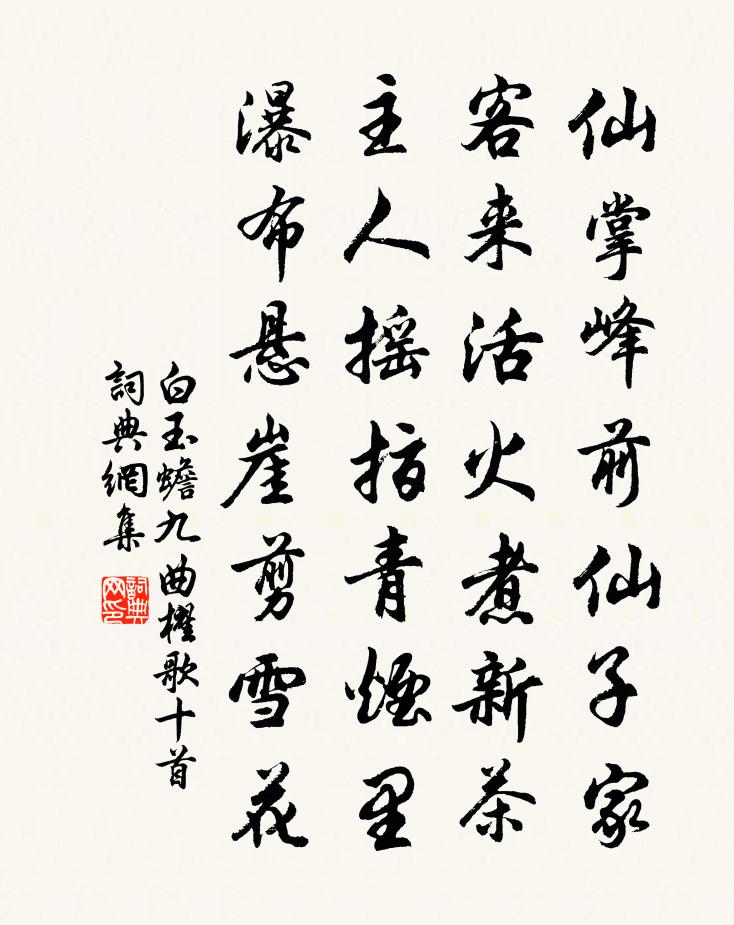 仙掌峰前仙子家
客来活火煮新茶
主人摇指青烟里
瀑布悬崖剪雪花
白玉蟾九曲櫂歌十首
詞典網集
詞典网印